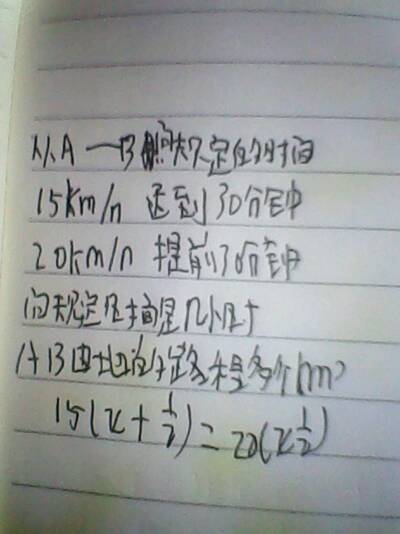 从A一B 规定的时间
15km/n 迟到30分钟
20km/n 提前30分钟
问规定时间是几小时
AB两地的路程是多少km?
15(x+1/2)=20(x 1/2)